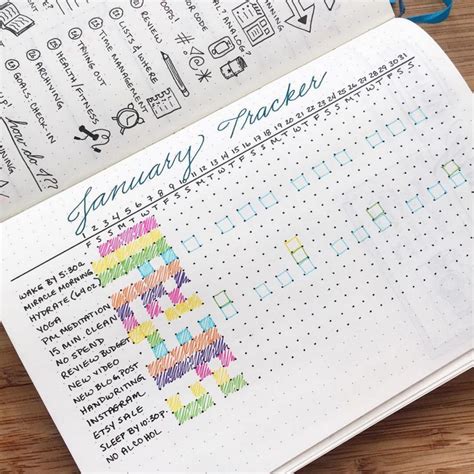 REVIEW
LISTS & WHERE
TIME MANAGEMENT
TRYING OUT
HEALTH/FITNESS
ARCHIVING
GOALS: CHECK-IN
January Tracker
1 2 3 4 5 6 7 8 9 10 11 12 13 14 15 16 17 18 19 20 21 22 23 24 25 26 27 28 29 30 31
WAKE BY 5:30A
MIRACLE MORNING
HYDRATE (64 OZ)
YOGA
PM MEDITATION
15 MIN. CLEAN
NO SPEND
REVIEW BUDGET
NEW VIDEO
NEW BLOG POST
HANDWRITING
INSTAGRAM
ETSY SALE
SLEEP BY 10:30P.
NO ALCOHOL